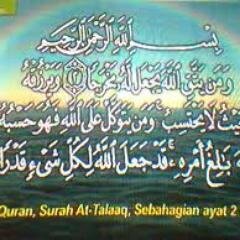 بِسْمِ اللَّهِ الرَّحْمَنِ الرَّحِيمِ
وَمَن يَتَّقِ اللَّهَ يَجْعَل لَّهُ مَخْرَجًا ﴿٢﴾ وَيَرْزُقْهُ
حَيْثُ لَا يَحْتَسِبُ ۚ وَمَن يَتَوَكَّلْ عَلَى اللَّهِ فَهُوَ حَسْبُهُ
بَالِغُ أَمْرِهِ ۚ قَدْ جَعَلَ اللَّهُ لِكُلِّ شَيْءٍ قَدْرًا
Quran, Surah At-Talaaq, Sebahagian ayat 2